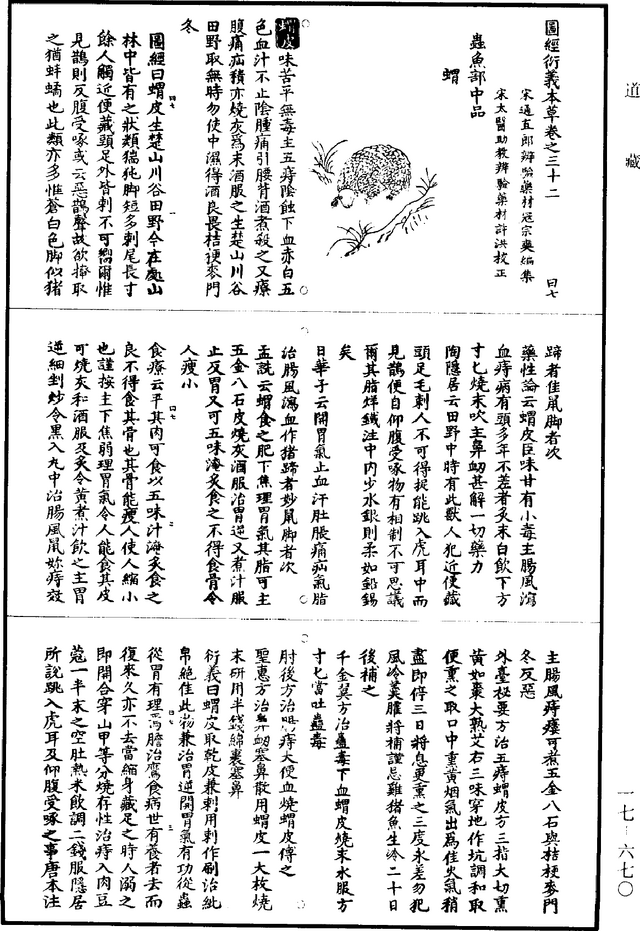 道藏
一七-六七〇
圖經衍義本草卷之三十二
曰七
宋通直郎辨驗藥材寇宗奭編集
宋太醫助教辨驗藥材許洪校正
蟲魚部中品
蝟
蝟皮味苦平無毒主五痔陰蝕下血赤白五
色血汁不止陰腫痛引腰背酒煮殺之又療
腹痛疝積亦燒灰為末酒服之生楚山川谷
田野取無時勿使中濕得酒良畏桔梗麥門
冬
圖經曰蝟皮生楚山川谷田野今在處山
林中皆有之狀類猯㹠脚短多刺尾長寸
餘人觸近便藏頭足外皆刺不可嚮爾惟
見鵲則反腹受啄或云惡鵲聲故欲掩取
之猶蚌蠵也此類亦多惟蒼白色脚似猪
蹄者佳鼠脚者次
藥性論云蝟皮臣味甘有小毒主腸風瀉
血痔病有頭多年不差者炙末白飲下方
寸匕燒末吹主鼻衄甚解一切藥力
陶隱居云田野中時有此獸人犯近便藏
頭足毛刺人不可得捉能跳入虎耳中而
見鵲便自仰腹受啄物有相制不可思議
爾其脂烊鐵注中內少水銀則柔如鉛錫
矣
日華子云開胃氣止血汗肚脹痛疝氣脂
治腸風瀉血作猪蹄者妙鼠脚者次
孟詵云蝟食之肥下焦理胃氣其脂可主
五金八石皮燒灰酒服治胃逆又煮汁服
止反胃又可五味淹炙食之不得食骨令
人瘦小
食療云平其肉可食以五味汁淹炙食之
良不得食其骨也其骨能瘦人使人縮小
也謹按主下焦弱理胃氣令人能食其皮
可燒灰和酒服及炙令黃煮汁飲之主胃
逆細剉炒令黑入丸中治腸風鼠奶痔效
主腸風痔瘻可煮五金八石與桔梗麥門
冬反惡
外臺秘要方治五痔蝟皮方三指大切熏
黃如棗大熟艾右三味穿地作坑調和取
便熏之取口中熏黃烟氣出為佳火氣稍
盡即停三日將息更熏之三度永差勿犯
風冷羹臛將補謹忌雞猪魚生冷二十日
後補之
千金翼方治蠱毒下血蝟皮燒末水服方
寸匕當吐蠱毒
肘後方治腸痔大便血燒蝟皮傅之
聖惠方治鼻衄塞鼻散用蝟皮一大枚燒
末研用半錢綿裹塞鼻
衍義曰蝟皮取乾皮兼刺用刺作刷治紕
帛絕佳此物兼治胃逆開胃氣有功從蟲
從胃有理焉膽治鷹食病世有養者去而
復來久亦不去當縮身藏足之時人溺之
即開合穿山甲等分燒存性治痔入肉豆
蔻一半末之空肚熱米飲調二錢服隱居
所說跳入虎耳及仰腹受啄之事唐本注